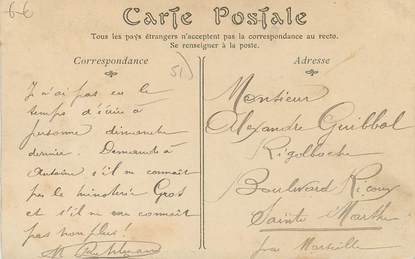 6-6
Carte Postale
Tous les pays étrangers n'acceptent pas la correspondance au recto.
Se renseigner à la poste.
Correspondance
51
J'n'ai pas eu le
temps d'écrire à
personne dimanche
dernier. Demande à
Antoine s'il ne connait
pas le minotier Gros
et s'il ne me connait
pas non plus!
M.
Adresse
Monsieur
Alexandre Guibbal
Rigolboche
Boulevard Ricoux
Sainte Marthe
par Marseille